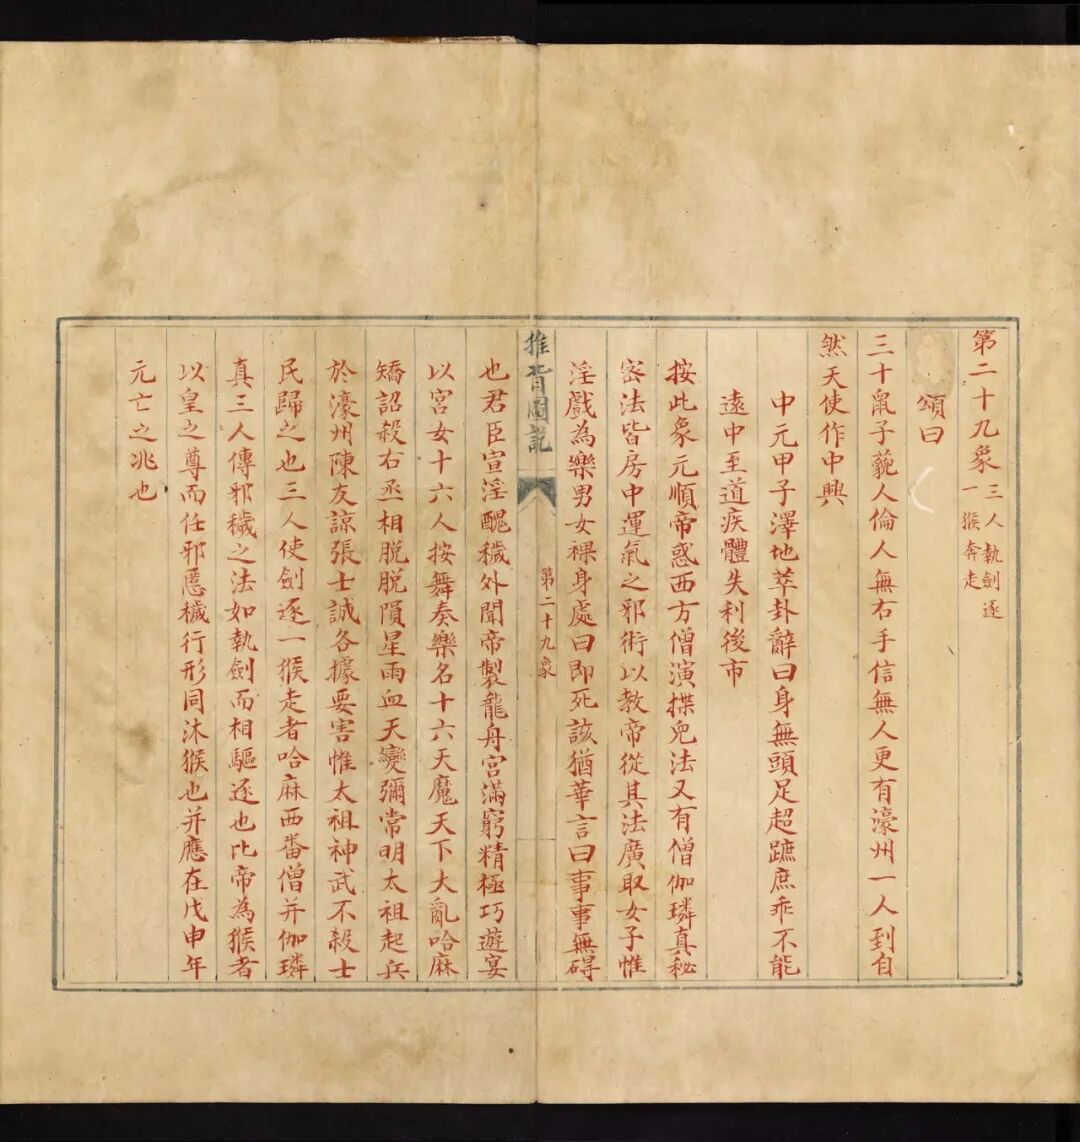 第二十九象 三人執劍逐
一猴奔走
頌曰
三十鼠子藐人倫人無右手信無人更有濠州一人到自
然天使作中興
中元甲子澤地萃卦辭曰身無頭足超蹠庶乖不能
遠中至道疾體失利後市
按此象元順帝惑西方僧演揲兒法又有僧伽璘真秘
密法皆房中運氣之邪術以教帝從其法廣取女子惟
淫戲為樂男女裸身處曰即死該猶華言曰事事無碍
推背圖說
第二十九象
也君臣宣淫醜穢外聞帝製龍舟宮滿窮精極巧遊宴
以宮女十六人按舞奏樂名十六天魔天下大亂哈麻
矯詔殺右丞相脱脱隕星雨血天變彌常明太祖起兵
於濠州陳友諒張士誠各據要害惟太祖神武不殺士
民歸之也三人使劍逐一猴走者哈麻西番僧并伽璘
真三人傳邪穢之法如執劍而相驅逐也比帝為猴者
以皇之尊而任邪慝穢行形同沐猴也并應在戊申年
元亡之兆也